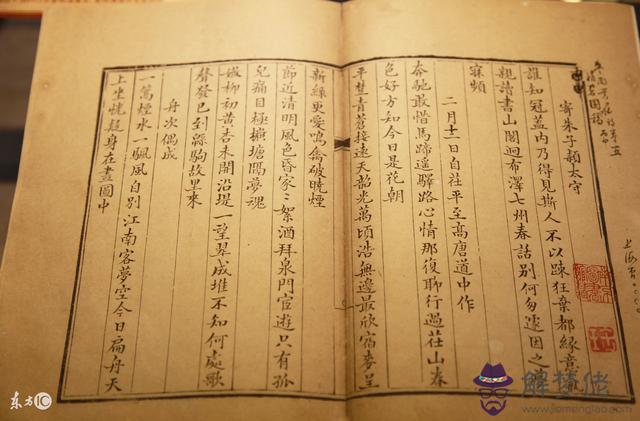 寄朱子穎太守
誰知冠蓋内乃得見斯人不以踈狂棄都緣意
親讀書山閣迥布澤七州春話別何匆遽因之
寐頻
二月十二日自茌平至高唐道中作
奔馳敢惜馬蹄遥驛路心情那復聊行過茌山春
色好方知今日是花朝
平楚青蒼接遠天韶光萬頃浩無邊最欣宿麥呈
新綠更愛鳴禽破曉煙
節近清明風色昏家〻絮酒拜泉門宦遊只有孤
兒痛目極橫塘隔夢魂
嫩柳初黃杏未開沿堤一望翠成堆不知何處歌
聲發已到緜駒故里來
舟次偶成
一篙煙水一颿風自別江南客夢空今日扁舟天
上坐恍疑身在畫圖中
东方IC
解梦佬
www.jiemenglao.com